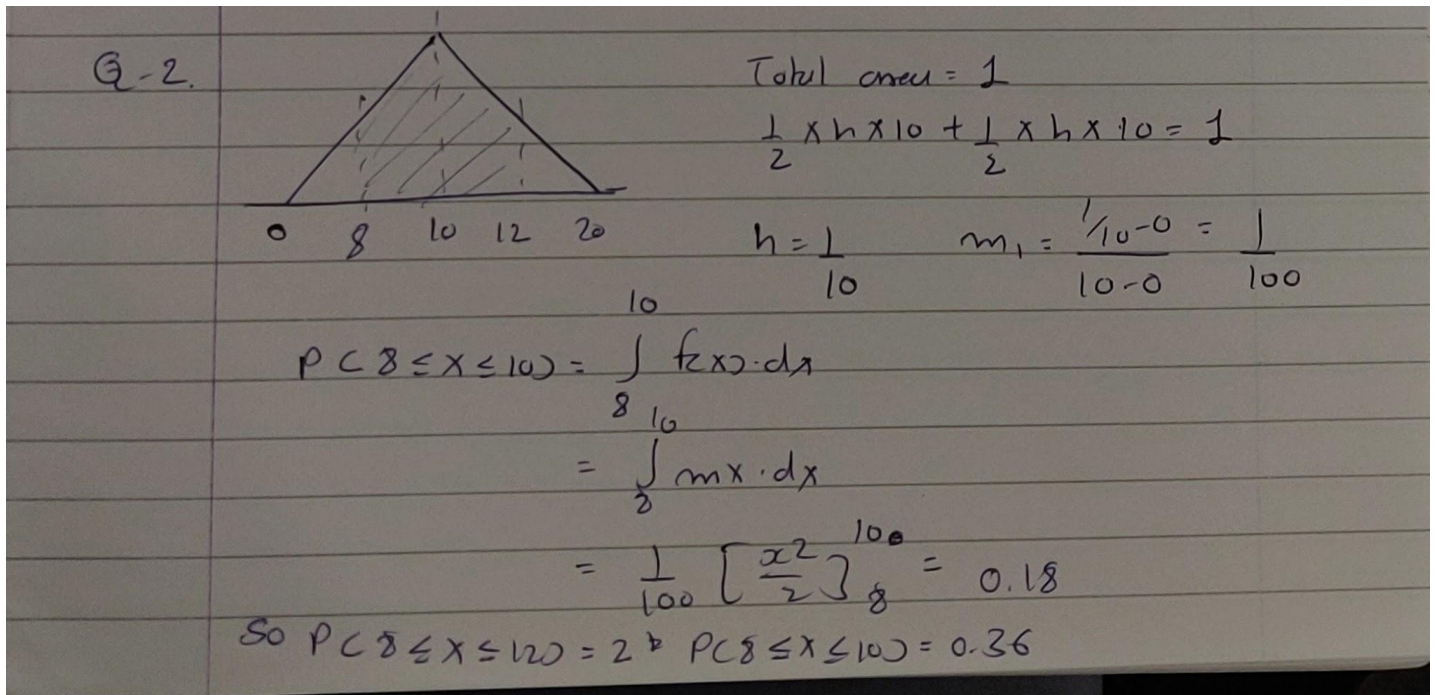 Q-2.
Total area = 1
1/2 x h x 10 + 1/2 x h x 10 = 1
0 8 10 12 20
h = 1/10 m₁ = (1/10 - 0)/(10-0) = 1/100
P(8 ≤ X ≤ 10) = ∫₈¹⁰ f(x).dx
= ∫₈¹⁰ mx.dx
= 1/100 [x²/2]₈¹⁰ = 0.18
So P(8 ≤ X ≤ 12) = 2 * P(8 ≤ X ≤ 10) = 0.36